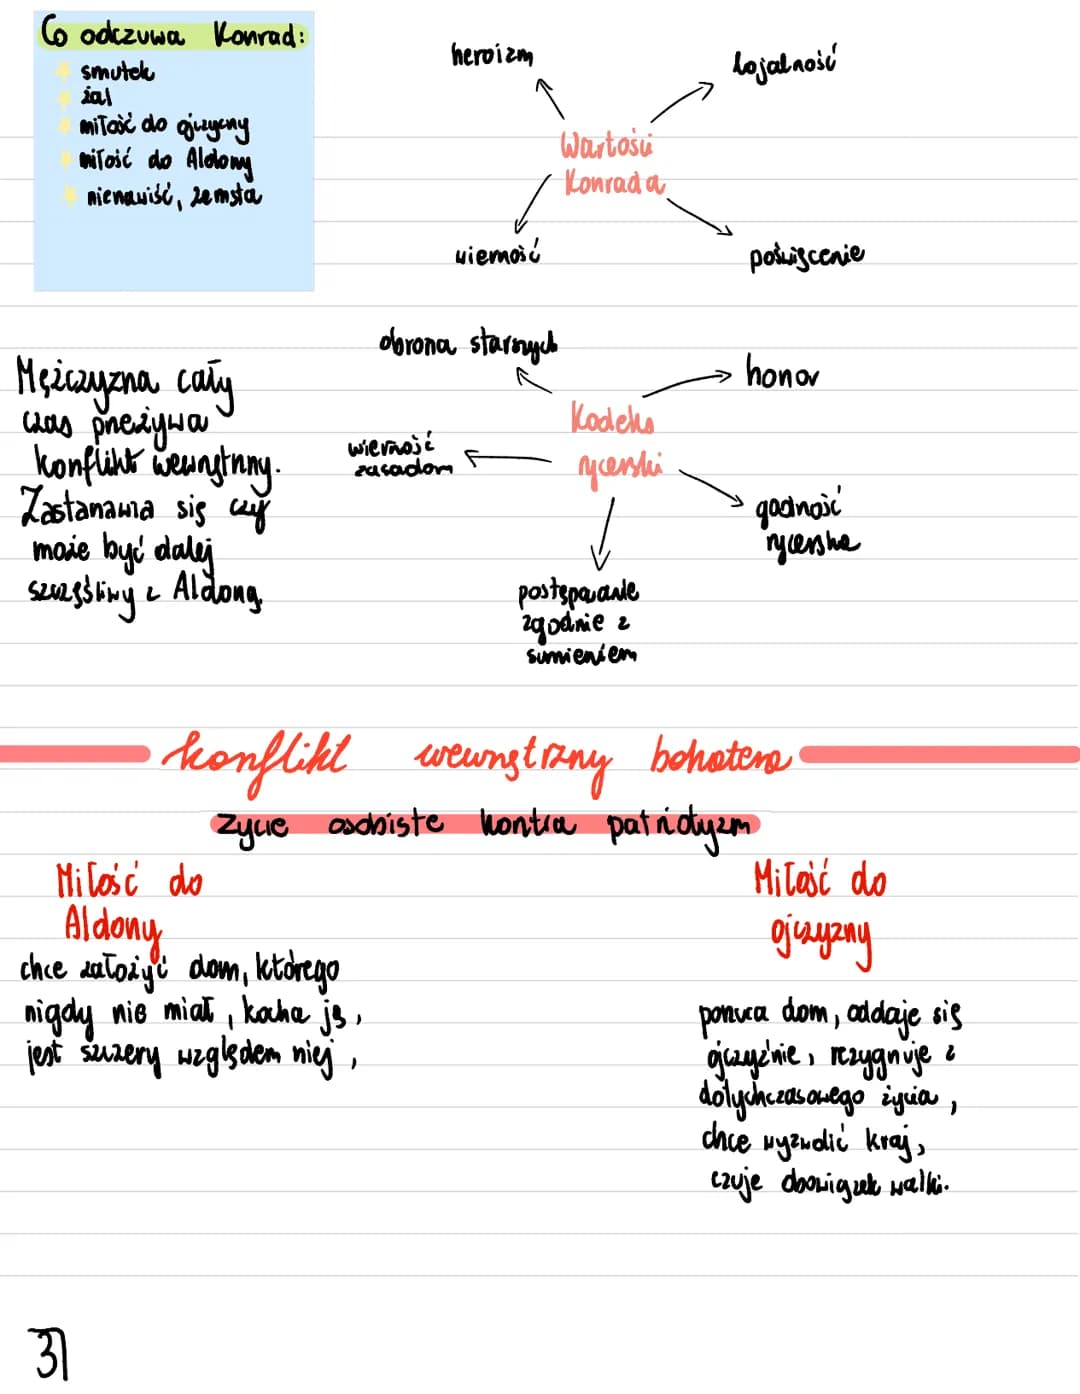 Co odczuwa Konrad:
smutek
żal
miłość do ojczyzny
miłość do Aldony
nienawiść, zemsta
heroizm
lojalność
Wartości
Konrada
wierność
poświęcenie
Mężczyzna cały
czas przeżywa
konflikt wewnętrzny.
Zastanawia się czy
może być dalej
szczęśliwy z Aldoną.
obrona starszych
honor
Kodeks
rycerski
wierność
zasadom
godność
rycerska
postępowanie
zgodnie z
sumieniem
konflikt wewnętrzny bohatera
życie osobiste kontra patriotyzm
Miłość do
Aldony
chce założyć dom, którego
nigdy nie miał, kocha ją,
jest szczery względem niej,
Miłość do
ojczyzny
porzuca dom, oddaje się
ojczyźnie, rezygnuje z
dotychczasowego życia,
chce wyzwolić kraj,
czuje obowiązek walki.
3